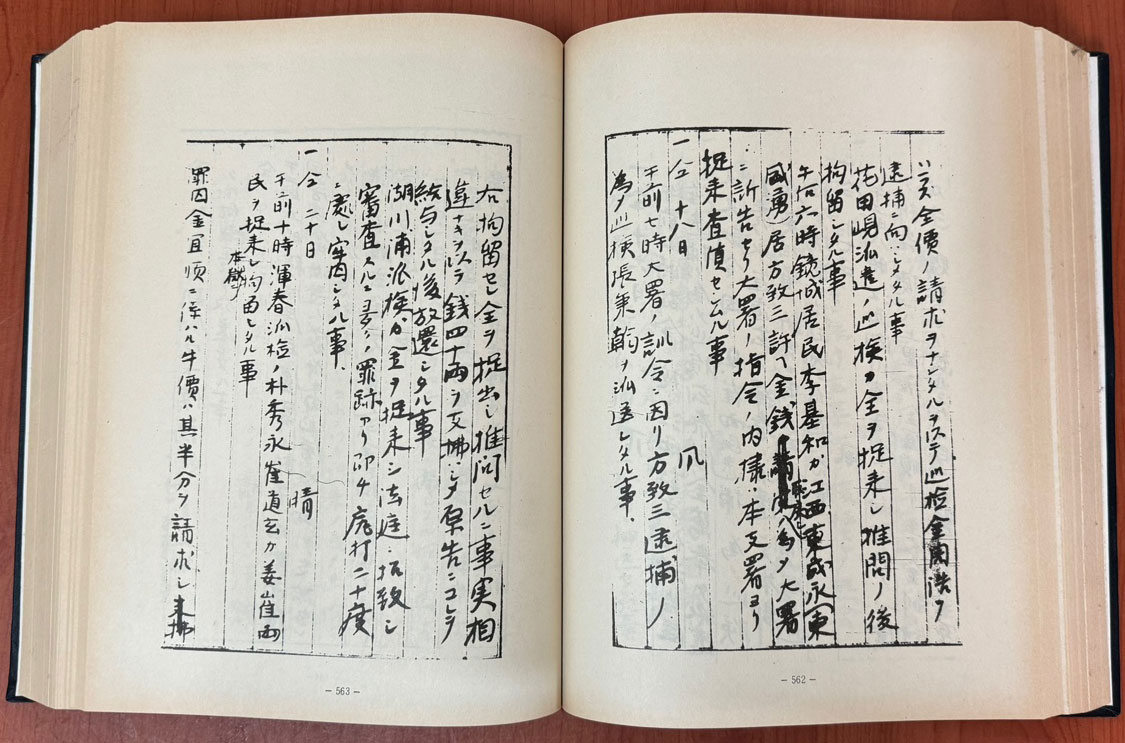 ハズ金價ノ請求ヲナシタルヲ以テ巡檢金
逮捕ニ向ハシメタル事
派遣ノ巡檢カ全ヲ捉来シ推問ノ後
拘留シタル事
午后六時鏡城居民李基和カ江西東
居方致三許ヘ金銭 為メ大署
ニ訴告セリ大署ノ指令ノ内 本支署ヨリ
捉来査償セシムル事
一仝 十八日 風
午前七時大署ノ訓令ニ因リ方致三逮捕ノ
為メ巡檢張秉翰ヲ派送シタル事、
- 562 -
右拘留セシ全ヲ捉出シ推問セルニ事実相
違ナキヲ以テ銭四十両ヲ支拂ハシメ原告ニコレヲ
給与シタル後放還シタル事
湖川浦派檢カ金ヲ捉来シ法庭ニ拓致シ
審査スルニ ノ罪跡アリ即チ 打二十度
ニ處シ牢囚シタル事、
一仝 二十日 晴
午前十時渾春派檢ノ朴秀永崔道玄カ姜崔両
民ヲ捉来シ拘留シタル事
罪囚金 順ニ係ハル牛價ハ其半分ヲ請求シ
- 563 -